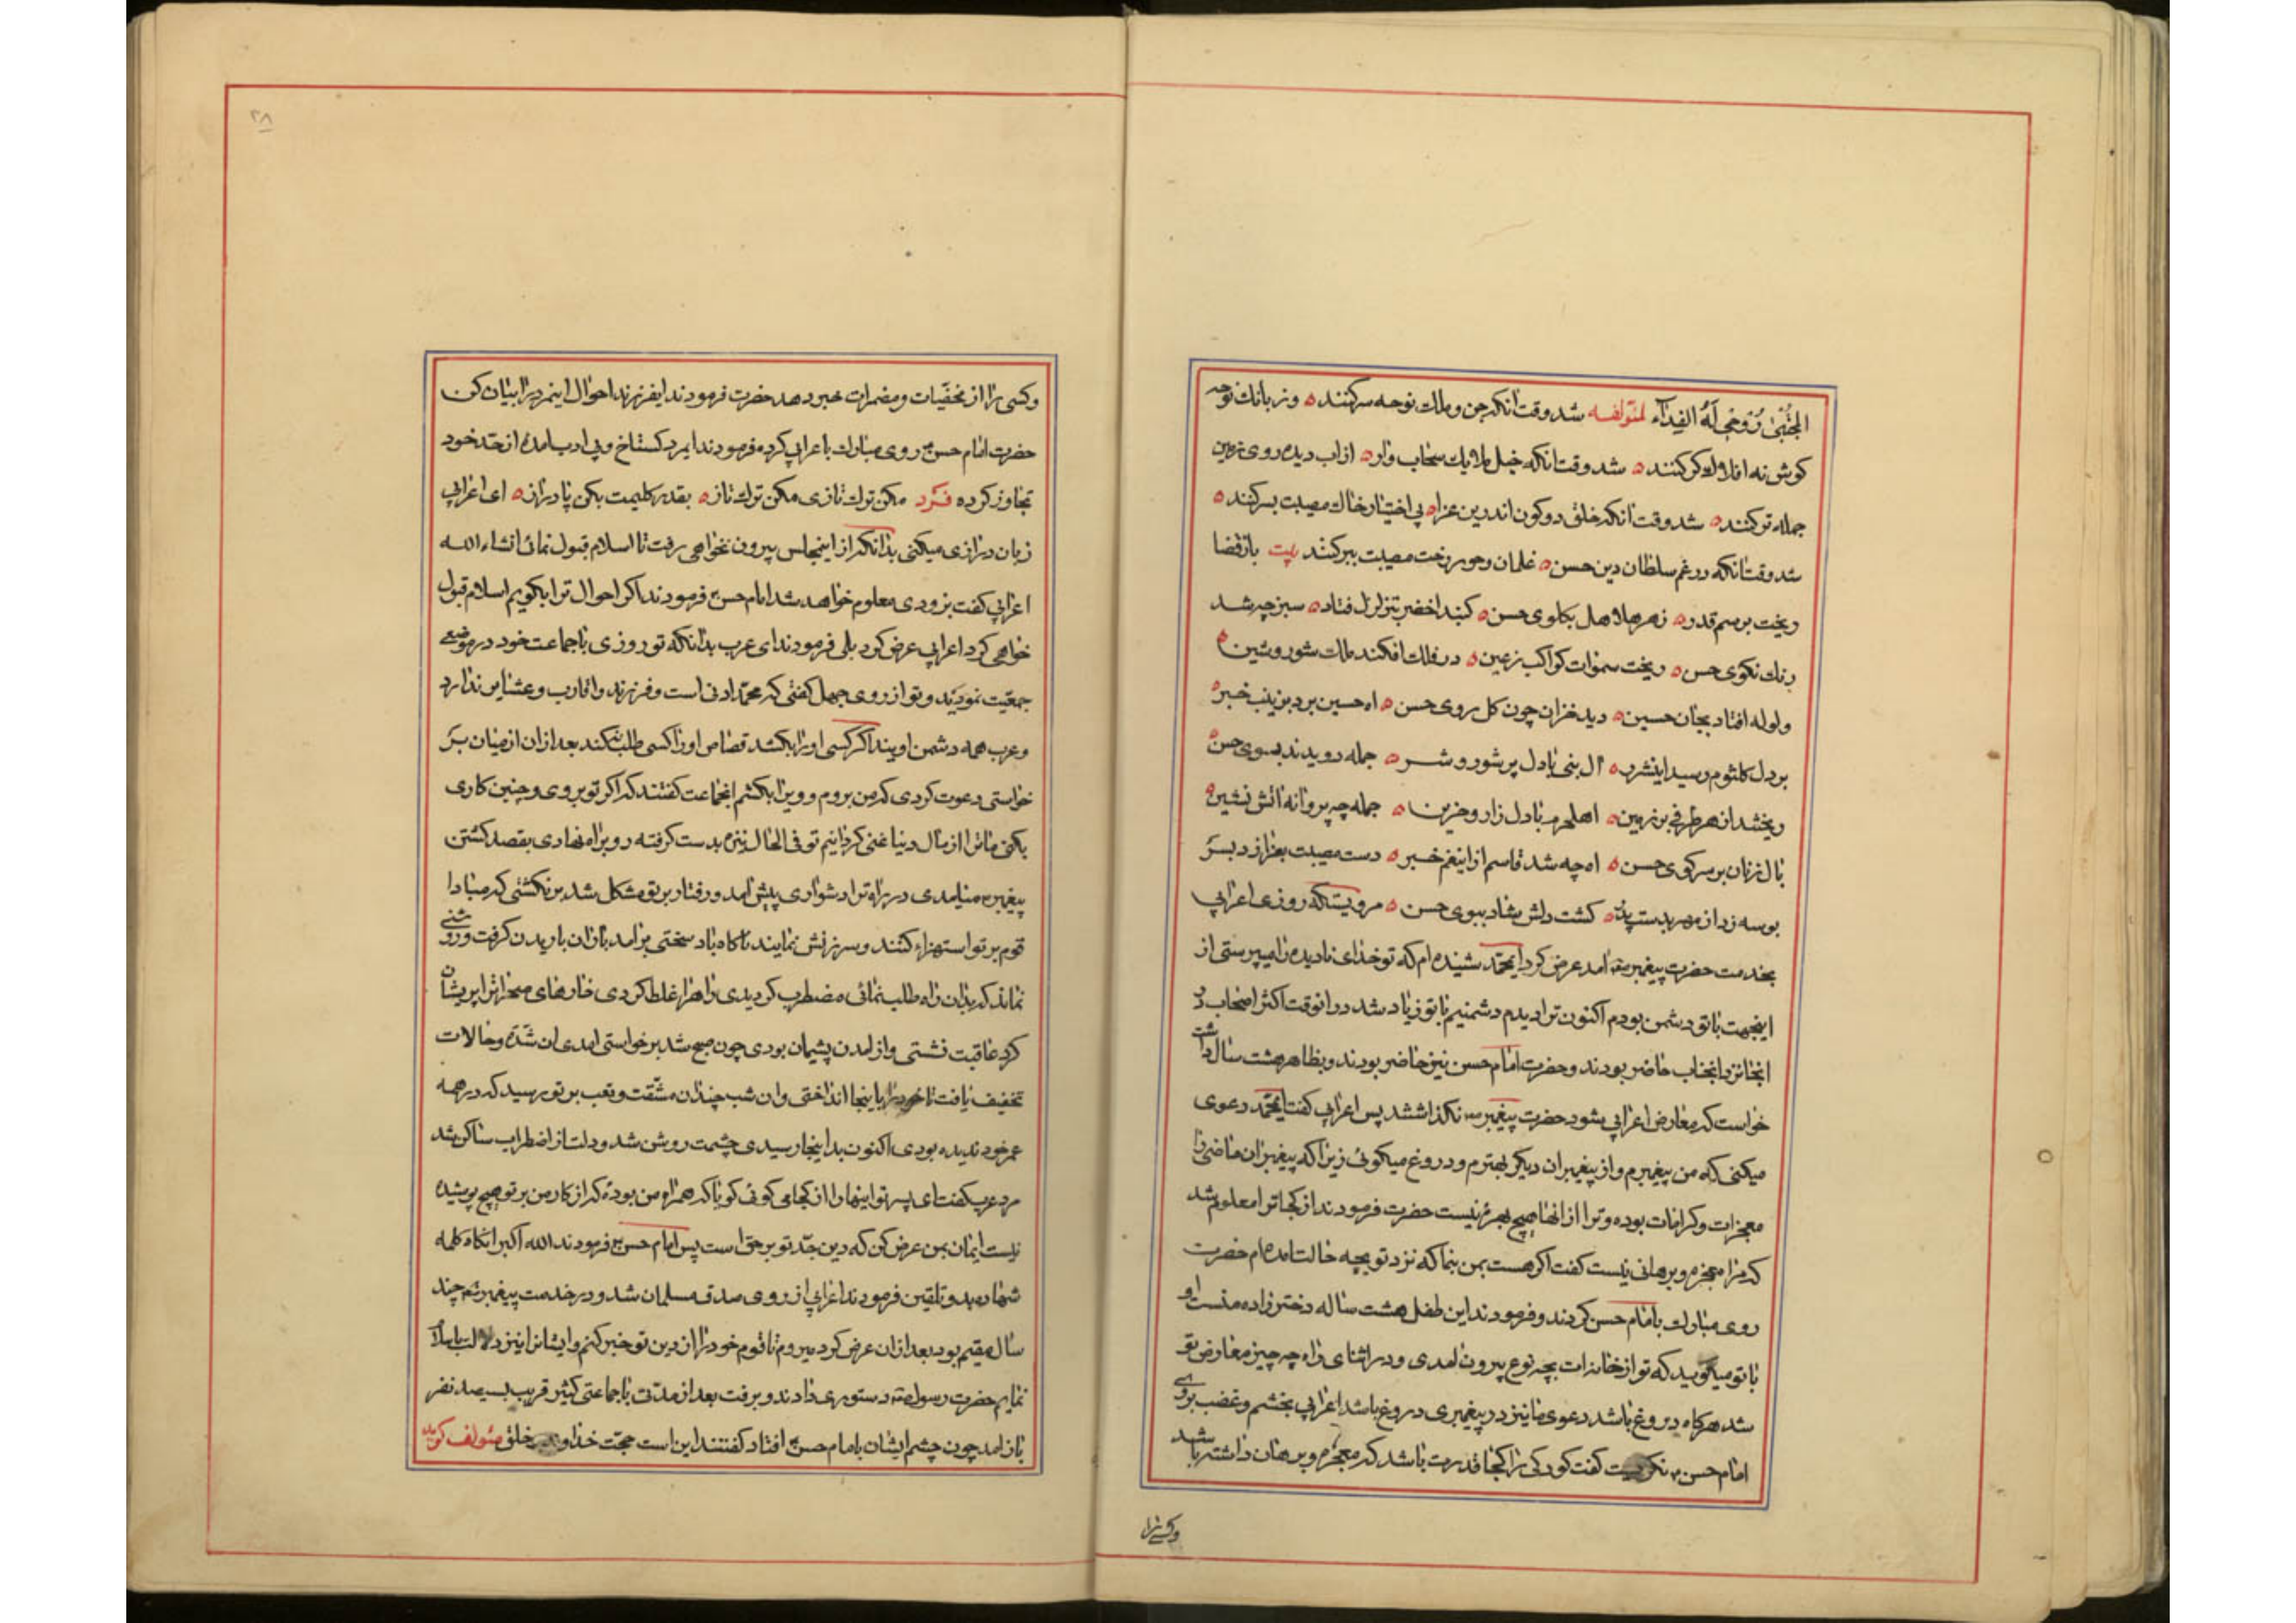 المجتبی روحی له الفداء لمؤلفه شد وقت انکه جن و ملک نوحه سرکنند وز بانک نوحه
کوش نه افلاک کر کنند شد وقت انکه خیل ملایک سحاب وار از اب دیده روی زمین
جمله تر کنند شد وقت انکه خلق دو کون اندرین عزا بی اختیار خاک مصیبت بسر کنند
شد وقت انکه در غم سلطان دین حسن غلمان و حور رخت مصیبت ببر کنند بیت باز قضا
ریخت برسم قدر زهر هلاهل بکلوی حسن کنبد اخضر بتزلزل فتاد سبز چه شد
رنک نکوی حسن ریخت سموات کواکب بزمین در فلک افکند ملک شور و شین
ولوله افتاد بجان حسین دید خزان چون کل روی حسن اه حسین برد بزینب خبر
بر دل کلثوم رسید اینشرر ال نبی بادل پر شور و شر جمله دویدند بسوی حسن
ریخشد از هر طرفی بر زمین اهلحرم بادل زار و حزین جمله چه پروانه اتش نشین
بال زنان بر سر کوی حسن اه چه شد قاسم ازاینغم خبر دست مصیبت بعزا زد بسر
بوسه زد از مهر بدست پدر کشت دلش شاد ببوی حسن مرویستکه روزی اعرابی
بخدمت حضرت پیغمبرص امد عرض کرد ایمحمد شنیده ام که تو خدای نادیده را میپرستی از
اینجهت باتو دشمن بودم اکنون ترا دیدم دشمنیم باتو زیاد شد در انوقت اکثر اصحاب در
انجا نزد انجناب حاضر بودند و حضرت امام حسن نیز حاضر بودند و بظاهر هشت سال داشت
خواست که معارض اعرابی بشود حضرت پیغمبرص نکذاشتند پس اعرابی کفت ایمحمد دعوی
میکنی که من پیغمبرم و از پیغمبران دیکر بهترم و دروغ میکوئی زیرا که پیغمبران ماضی را
معجزات و کرامات بوده و ترا از انها هیچ بهره نیست حضرت فرمودند از کجا ترا معلوم شد
که مرا معجزه و برهانی نیست کفت اکر هست بمن بنما که نزد تو بچه حالت امده ام حضرت
روی مبارک بامام حسن کردند و فرمودند این طفل هشت ساله دختر زاده منست او
با تو میکوید که تو از خانه ات بچه نوع بیرون امدی و در اثنای راه چه چیز معارض تو
شد هرکاه دروغ باشد دعوی ما نیز در پیغمبری دروغ باشد اعرابی بخشم و غضب بروی
امام حسن ع نکریست کفت کودکی را کجا قدرت باشد که معجزه و برهان داشته باشد
وکسی را
۲۸
وکسی را از مخفیات و مضمرات خبر دهد حضرت فرمودند ایفرزند احوال اینمرد را بیان کن
حضرت امام حسن ع روی مبارک باعرابی کرده فرمودند ایمرد کستاخ و بی ادب امدهٔ از حد خود
تجاوز کرده فرد مکن ترک تازی مکن ترک تاز بقدر کلیمت بکن پا دراز ای اعرابی
زبان درازی میکنی بدانکه از اینمجلس بیرون نخواهی رفت تا اسلام قبول نمائی انشاءالله
اعرابی کفت بزودی معلوم خواهد شد امام حسن ع فرمودند اکر احوال ترا بکویم اسلام قبول
خواهی کرد اعرابی عرض کرد بلی فرمودند ای عرب بدانکه تو روزی باجماعت خود در موضعی
جمعیت نمودید و تو از روی جهل کفتی که محمد ادنی است و فرزند و اقارب و عشایر ندارد
و عرب همه دشمن اویند اکر کسی او را بکشد قصاص او را کسی طلب نکند بعد از ان از میان بر
خواستی دعوت کردی که من بروم و ویرا بکشم انجماعت کفتند که اکر تو بروی و چنین کاری
بکنی ما ترا از مال دنیا غنی کردانیم تو فی الحال نیزه بدست کرفته رو براه نهادی بقصد کشتن
پیغمبرص میامدی در راه ترا دشواری پیش امد و رفتار بر تو مشکل شد بر نکشتی که مبادا
قوم بر تو استهزاء کنند و سرزنش نمایند ناکاه باد سختی برامد باران باریدن کرفت و روشنی
نماند که بدان راه طلب نمائی مضطرب کردیدی راه را غلط کردی خارهای صحرا ترا پریشان
کرد عاقبت نشستی و از امدن پشیمان بودی چون صبح شد بر خواستی امدی ان شدة و حالات
تخفیف یافت تا خود را باینجا انداختی و ان شب چندان مشقت و تعب بر تو رسید که در همه
عمر خود ندیده بودی اکنون بداینجا رسیدی چشمت روشن شد و دلت از اضطراب ساکن شد
مرد عرب کفت ای پسر تو اینها را از کجا می کوئی کویا که همراه من بودهٔ که از کار من بر تو هیچ پوشیده
نیست ایمان بمن عرض کن که دین جد تو بر حق است پس امام حسن ع فرمودند الله اکبر انکاه کلمه
شهاده بدو تلقین فرمودند اعرابی از روی صدق مسلمان شد و در خدمت پیغمبرص چند
سال مقیم بود بعد از ان عرض کرد میروم تا قوم خود را از دین تو خبر کنم و ایشانرا نیز دلالت باسلام
نمایم حضرت رسول ص دستوری دادند و برفت بعد از مدتی باجماعتی کثیر قریب بسیصد نفر
باز امد چون چشم ایشان بامام حسن ع افتاد کفتند این است حجت خداوند خلق مئولف کوید